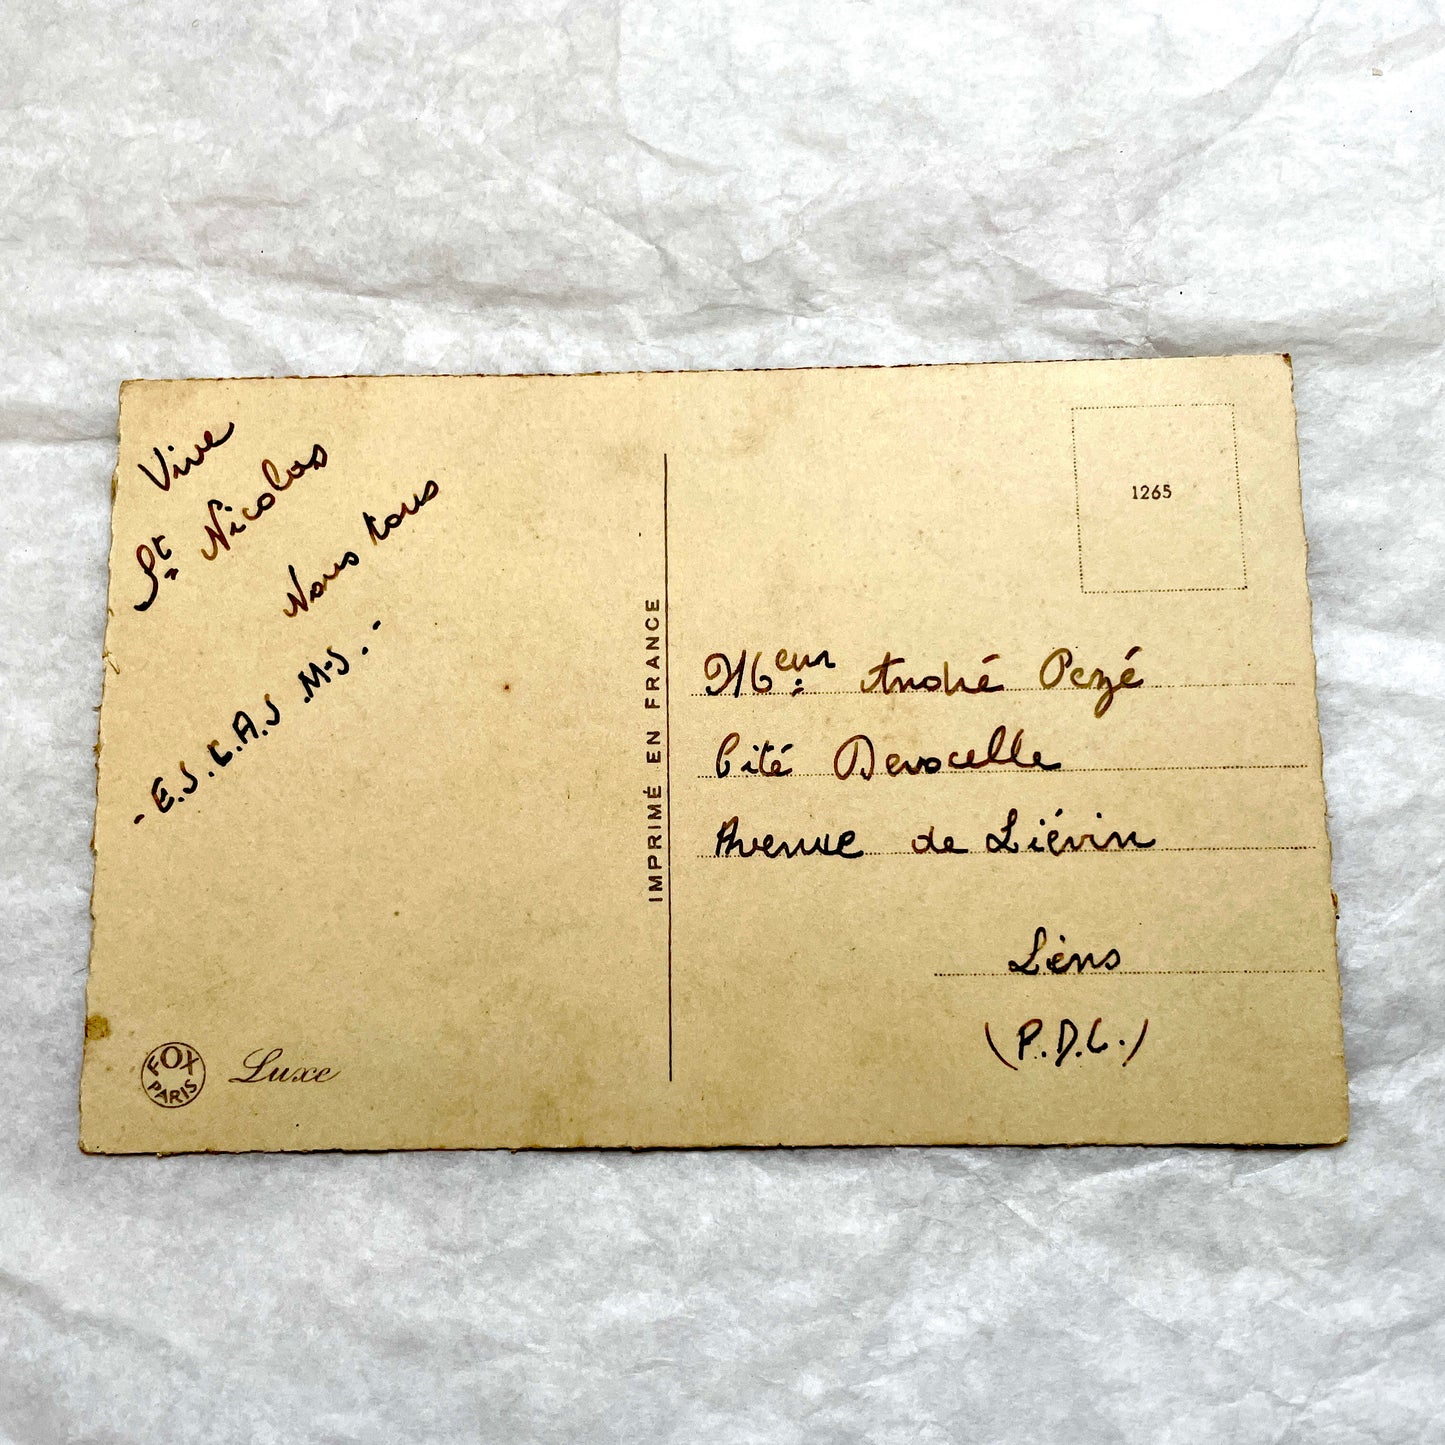 Vive
St Nicolas
Nous tous
- E.S.L.A.S .M-S. -
IMPRIMÉ EN FRANCE
1265
Meur André Pezé
Cité Devocelle
Avenue de Liévin
Lens
(P.D.C.)
FOX
PARIS
Luxe